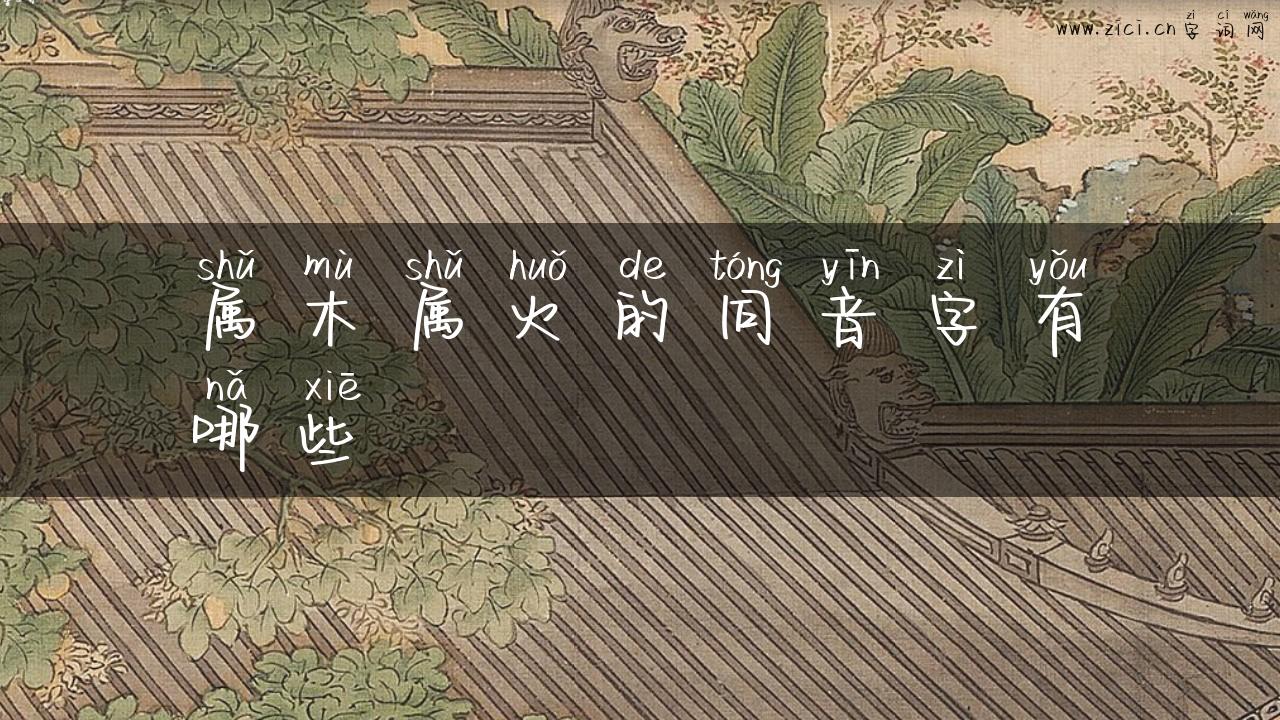 zì cí wǎng
www.zici.cn 字词网
shǔ mù shǔ huǒ de tóng yīn zì yǒu
属木属火的同音字有
nǎ xiē
哪些